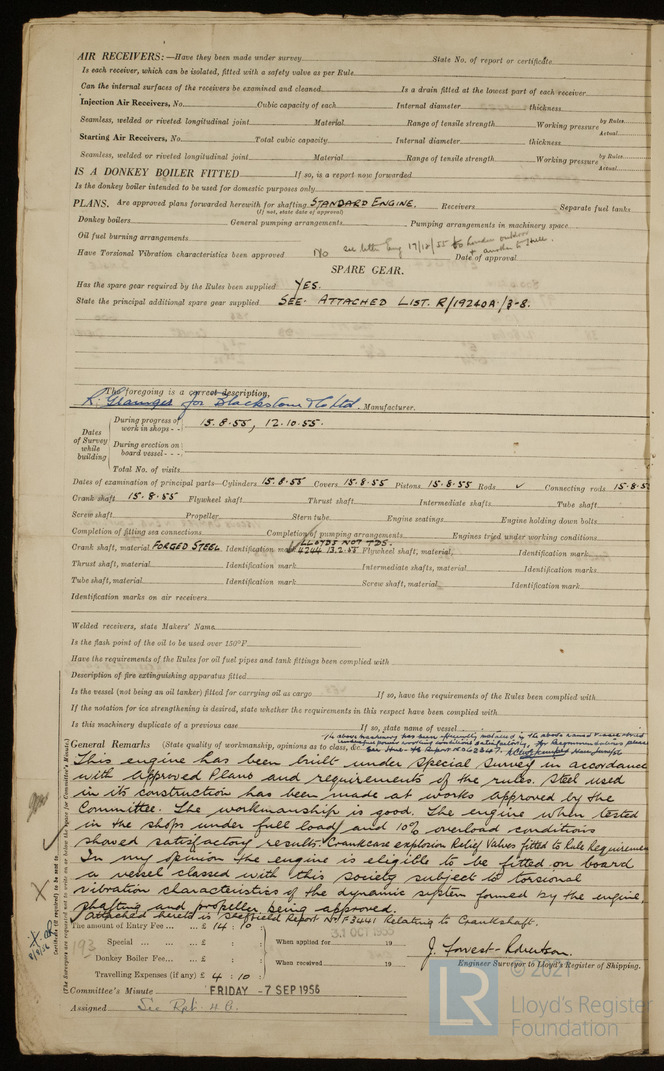 AIR RECEIVERS:—Have they been made under survey State No. of report or certificate
Is each receiver, which can be isolated, fitted with a safety valve as per Rule
Can the internal surfaces of the receivers be examined and cleaned Is a drain fitted at the lowest part of each receiver
Injection Air Receivers, No. Cubic capacity of each Internal diameter thickness
Seamless, welded or riveted longitudinal joint Material Range of tensile strength Working pressure by Rules Actual
Starting Air Receivers, No. Total cubic capacity Internal diameter thickness
Seamless, welded or riveted longitudinal joint Material Range of tensile strength Working pressure by Rules Actual
IS A DONKEY BOILER FITTED If so, is a report now forwarded
Is the donkey boiler intended to be used for domestic purposes only
PLANS. Are approved plans forwarded herewith for shafting STANDARD ENGINE. Receivers Separate fuel tanks
(If not, state date of approval)
Donkey boilers General pumping arrangements Pumping arrangements in machinery space
Oil fuel burning arrangements
Have Torsional Vibration characteristics been approved No see letter Eng 17/12/55 to London outdoor + another to Hull. Date of approval
SPARE GEAR.
Has the spare gear required by the Rules been supplied YES.
State the principal additional spare gear supplied SEE ATTACHED LIST. R/19240A/3-8.
The foregoing is a correct description,
for Blackstone & Co Ltd. Manufacturer.
Dates of Survey while building
During progress of work in shops - - 15.8.55, 12.10.55.
During erection on board vessel - - -
Total No. of visits
Dates of examination of principal parts—Cylinders 15.8.55 Covers 15.8.55 Pistons 15.8.55 Rods ✓ Connecting rods 15.8.5
Crank shaft 15.8.55 Flywheel shaft Thrust shaft Intermediate shafts Tube shaft
Screw shaft Propeller Stern tube Engine seatings Engine holding down bolts
Completion of fitting sea connections Completion of pumping arrangements Engines tried under working conditions
Crank shaft, material FORGED STEEL Identification mark LLOYDS NOT TDS. 4744 13.2.55 Flywheel shaft, material Identification mark
Thrust shaft, material Identification mark Intermediate shafts, material Identification marks
Tube shaft, material Identification mark Screw shaft, material Identification mark
Identification marks on air receivers
Welded receivers, state Makers' Name
Is the flash point of the oil to be used over 150°F
Have the requirements of the Rules for oil fuel pipes and tank fittings been complied with
Description of fire extinguishing apparatus fitted
Is the vessel (not being an oil tanker) fitted for carrying oil as cargo If so, have the requirements of the Rules been complied with
If the notation for ice strengthening is desired, state whether the requirements in this respect have been complied with
Is this machinery duplicate of a previous case If so, state name of vessel
The above machinery has been
General Remarks (State quality of workmanship, opinions as to class, &c.
This engine has been built under Special Survey in accordance
with approved Plans and requirements of the rules. Steel used
in its construction has been made at works approved by the
Committee. The workmanship is good. The engine when tested
in the shops under full load and 10% overload conditions
showed satisfactory results. Crankcase explosion Relief Valves fitted to Rule Requiremen
In my opinion the engine is eligible to be fitted on board
a vessel classed with this society subject to torsional
vibration characteristics of the dynamic system formed by the engine,
shafting and propeller being approved.
Attached hereto is Sheffield Report No F3441 Relating to Crankshaft.
The amount of Entry Fee ... £ 14 : 10 31 OCT 1955
193 Special ... £ : When applied for 19
Donkey Boiler Fee... £ : When received 19
Travelling Expenses (if any) £ 4 : 10
J. Forrest-Robertson.
Engineer Surveyor to Lloyd's Register of Shipping.
Committee's Minute FRIDAY - 7 SEP 1956
Assigned See Rpt. 4 A.
Certificate (if required) to be sent to
(The Surveyors are requested not to write on or below the space for Committee's Minute.)
© 2021
LR
Lloyd's Register
Foundation